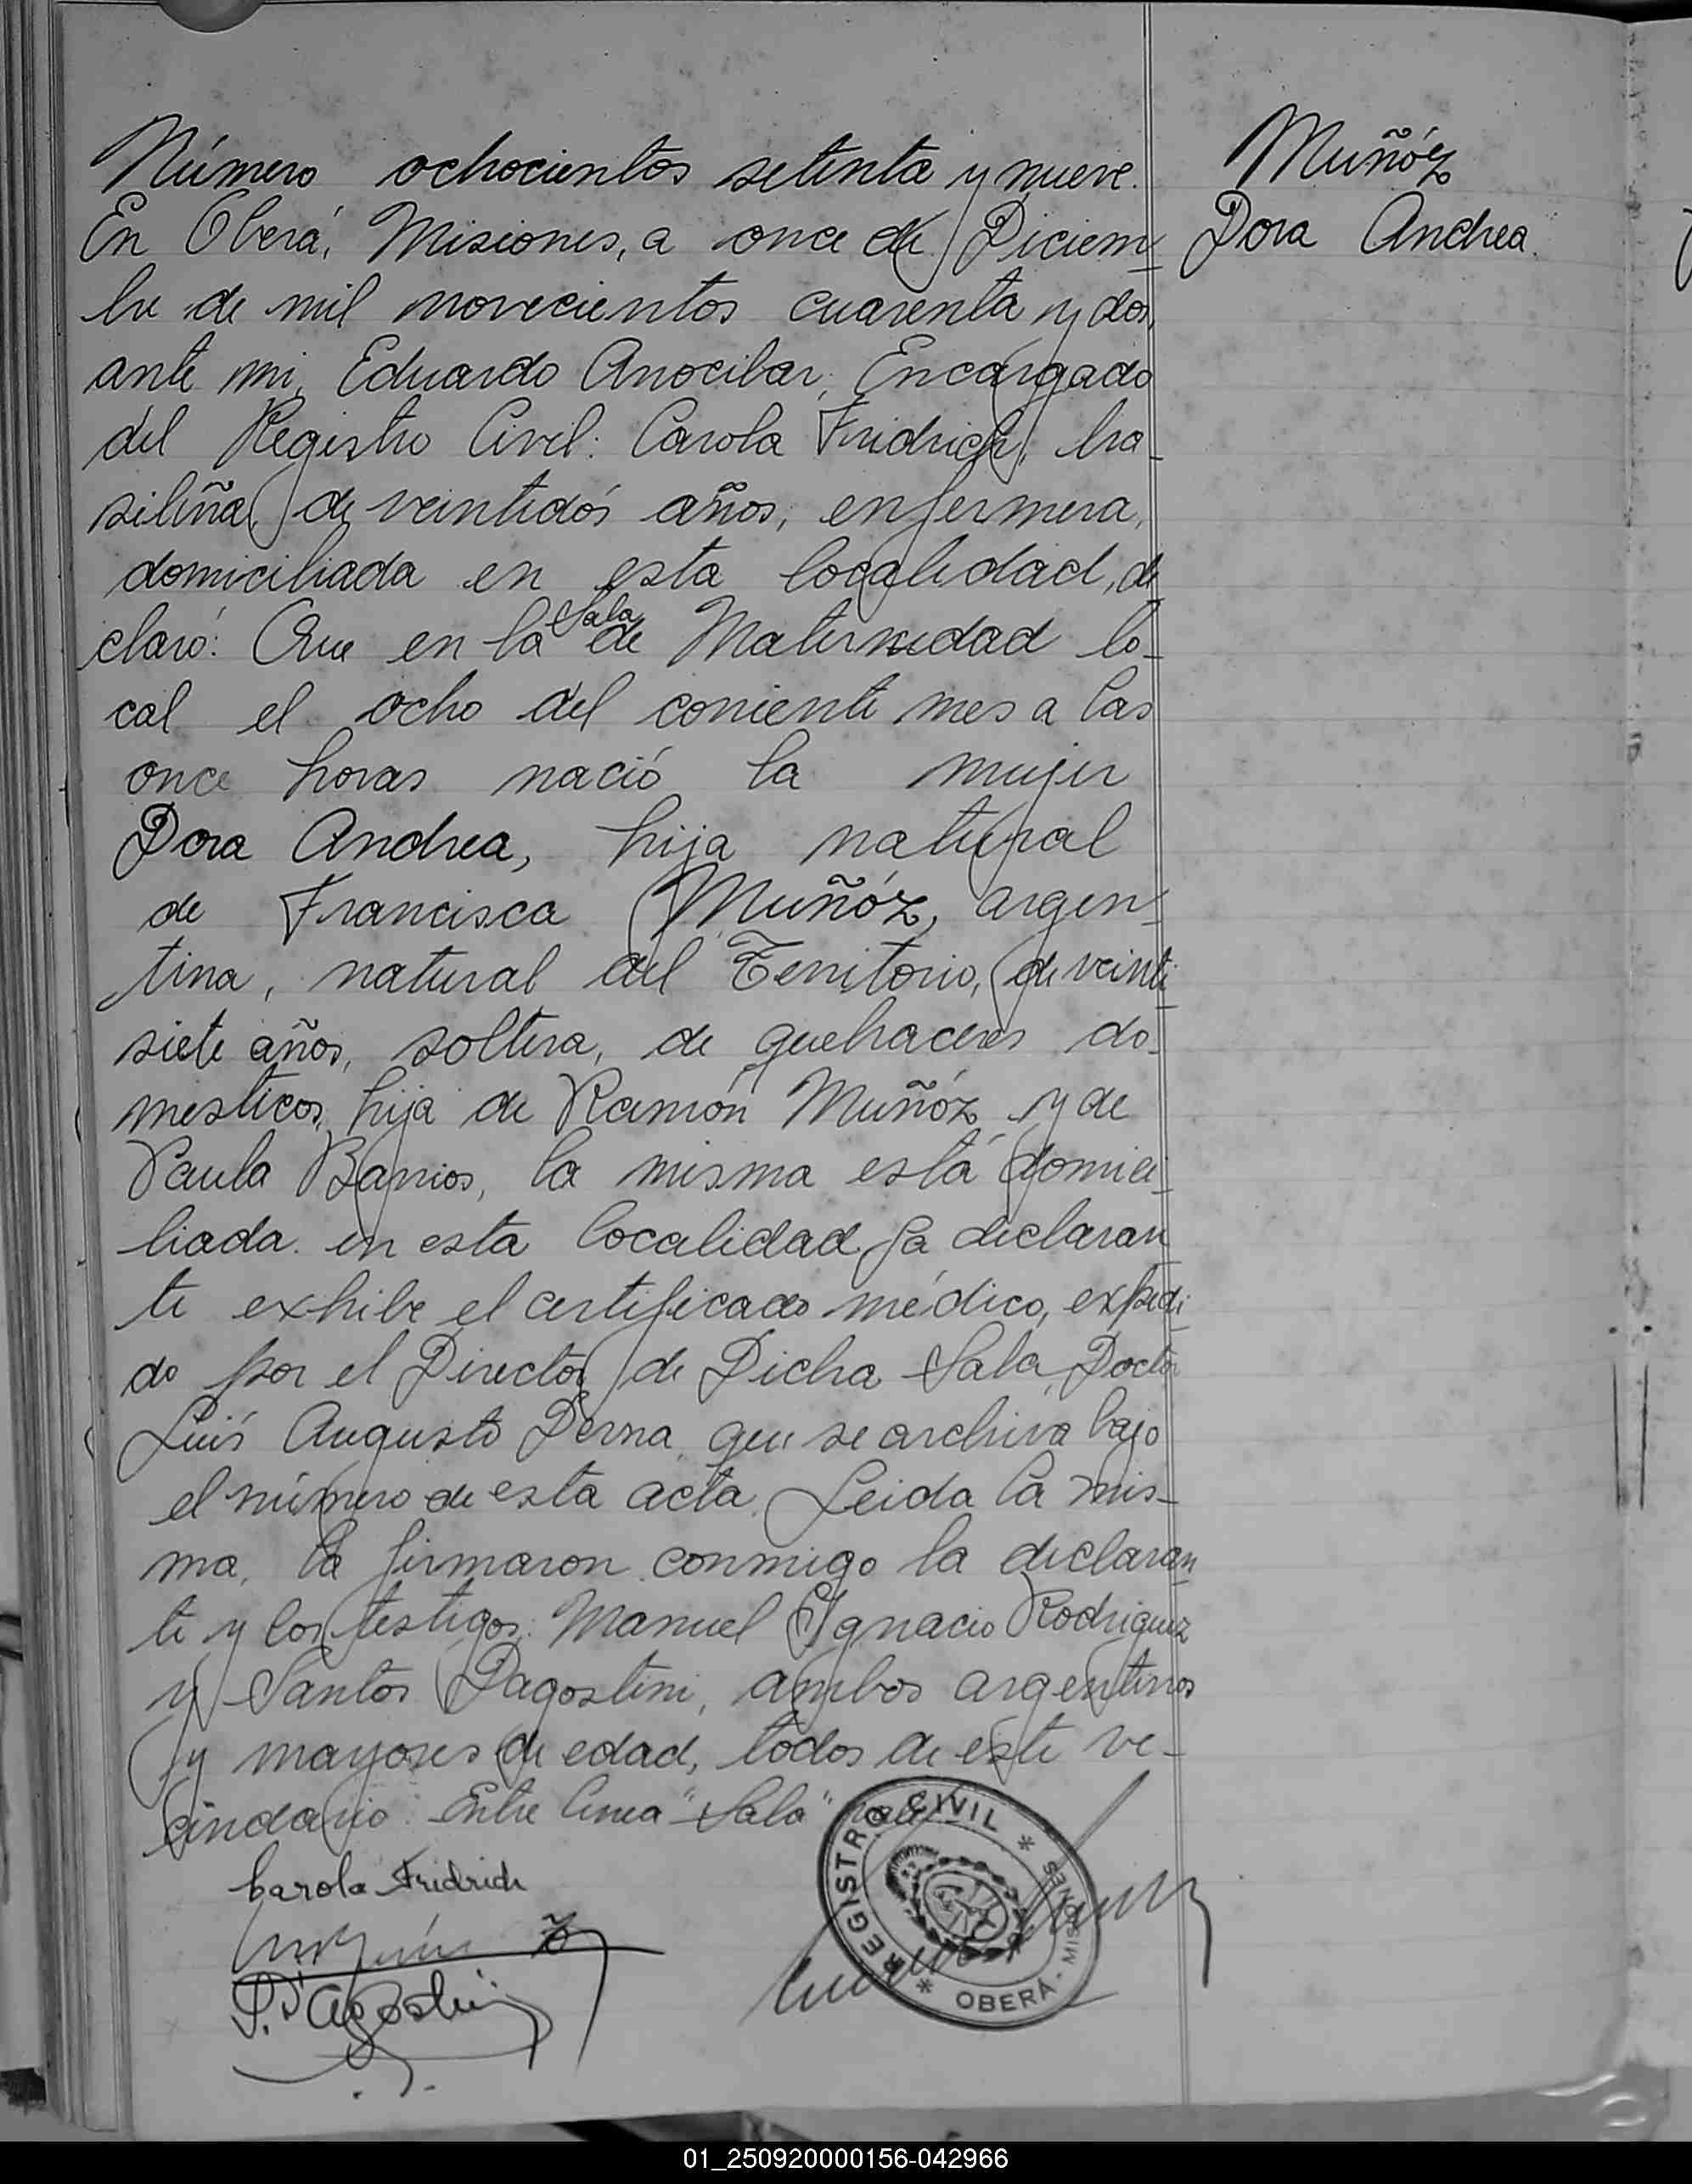 Número ochocientos setenta y nueve.
En Oberá, Misiones, a once de Diciem-
bre de mil novecientos cuarenta y dos,
ante mi, Eduardo Anocibar, Encargado
del Registro Civil: Carola Fridrich, bra-
sileña, de veintidós años, enfermera,
domiciliada en esta localidad, de-
claró: Que en la Sala de Maternidad lo-
cal el ocho del corriente mes a las
once horas nació la mujer
Dora Andrea, hija natural
de Francisca Muñóz, argen-
tina, natural del Territorio, de veinti-
siete años, soltera, de quehaceres do-
mesticos, hija de Ramón Muñóz y de
Paula Barrios, la misma está domici-
liada en esta localidad. La declaran-
te exhibe el certificado médico, expedi-
do por el Director de Dicha Sala, Doctor
Luís Augusto Derna, que se archiva bajo
el número de esta acta. Leida la mis-
ma, la firmaron conmigo la declaran-
te y los testigos: Manuel Ignacio Rodriguez
y Santos Dagostini, ambos argentinos
y mayores de edad, todos de este ve-
cindario. Entre linea "Sala" vale
Carola Fridrich
S. D'Agostini
Muñóz
Dora Andrea.
REGISTRO CIVIL
OBERÁ - MISIONES
01_250920000156-042966